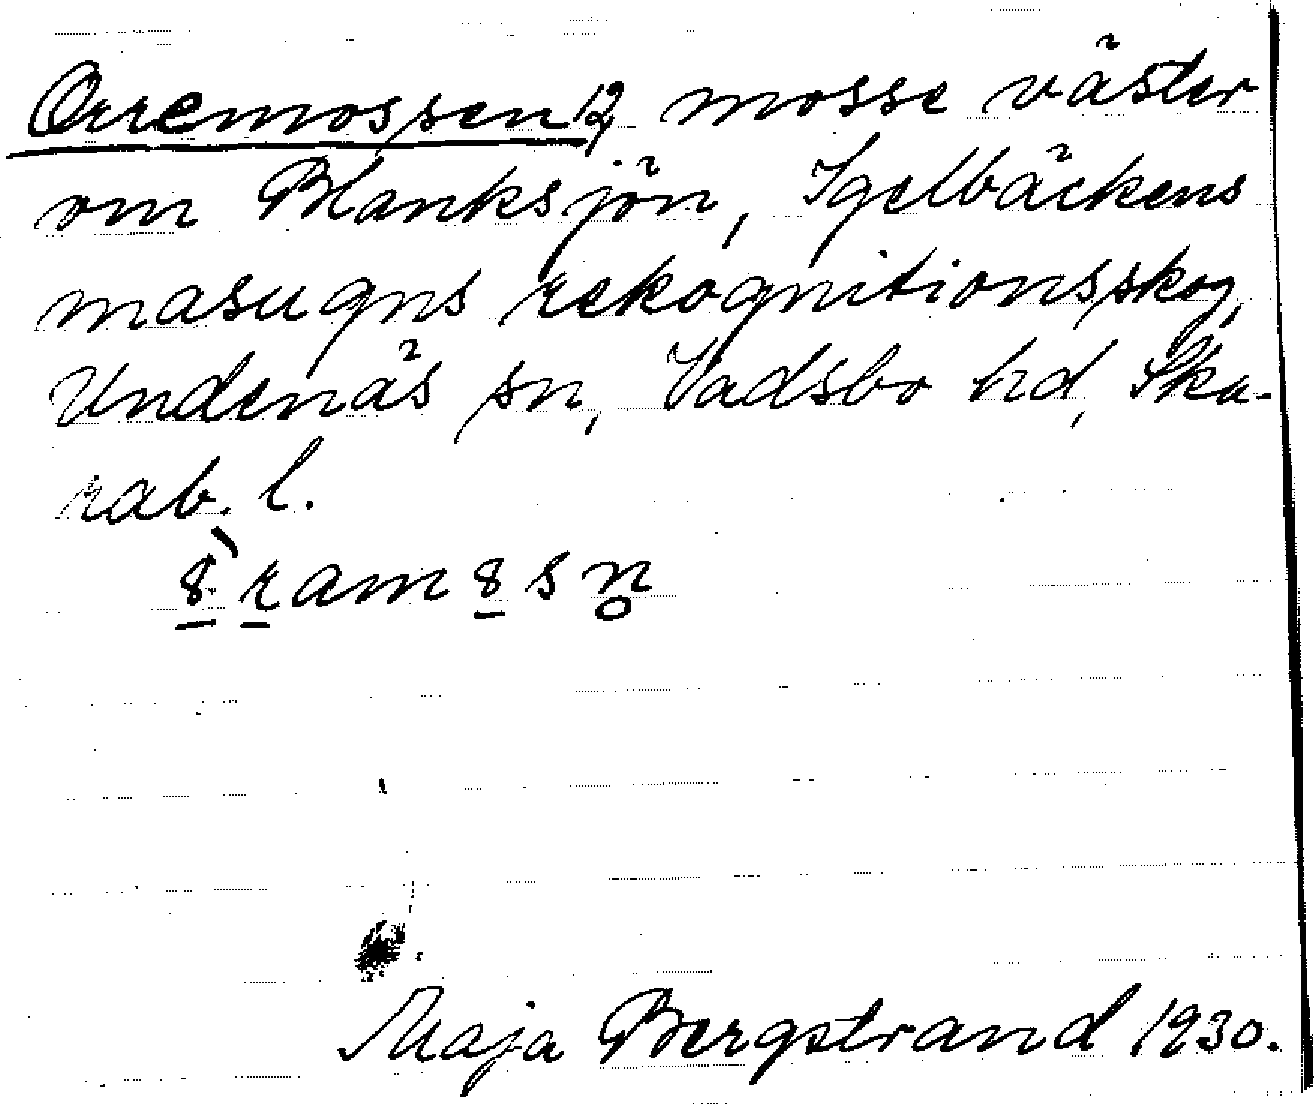 Orremossen 12, mosse väster
om Blanksjön, Igelbäckens
masugns rekognitionsskog,
Undenäs sn, Vadsbo hd, Ska-
rab. l.
8̱̀ ṟam8̱sn̥
Maja Bergstrand 1930.